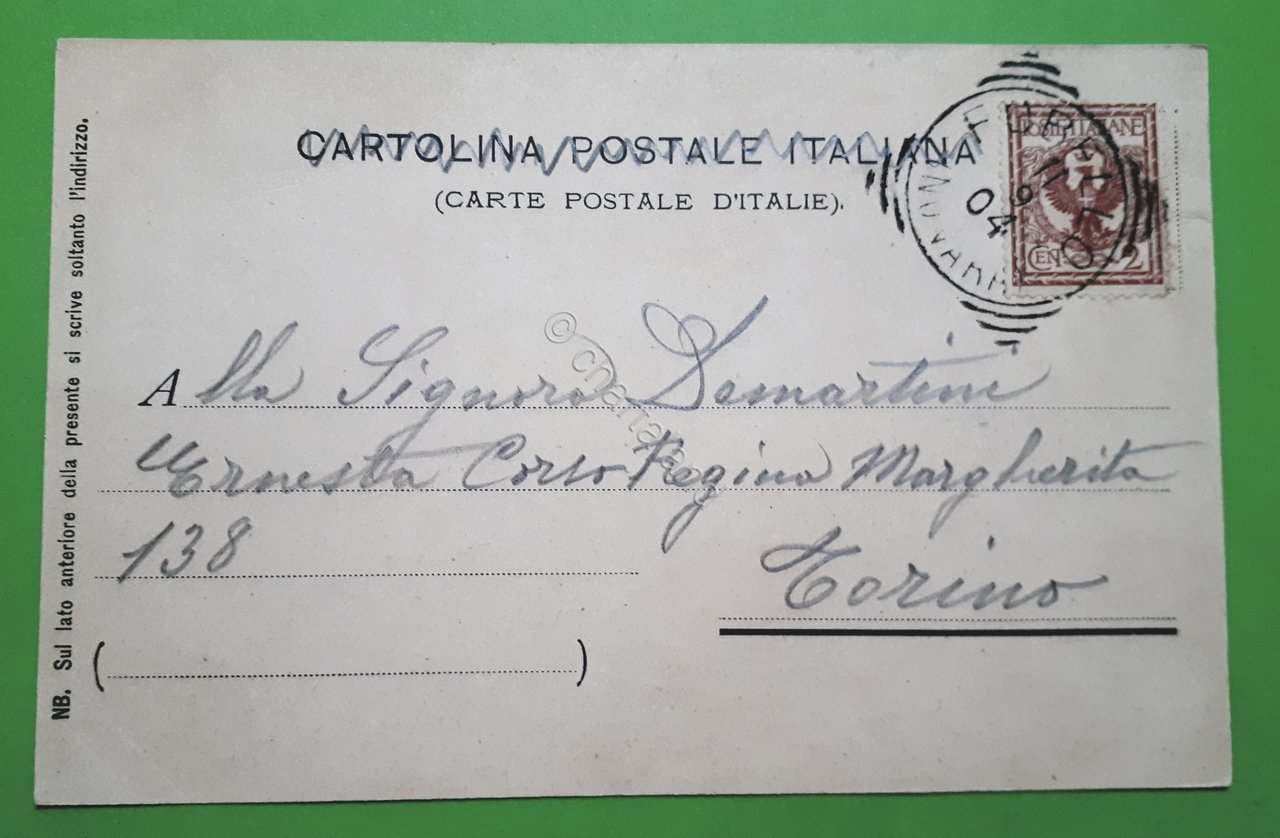 CARTOLINA POSTALE ITALIANA
(CARTE POSTALE D'ITALIE).
POSTE ITALIANE
CEN. 2
11
9
04
Alla Signora Demartini
Ernesta Corso Regina Margherita
138
Torino
NB. Sul lato anteriore della presente si scrive soltanto l'indirizzo.